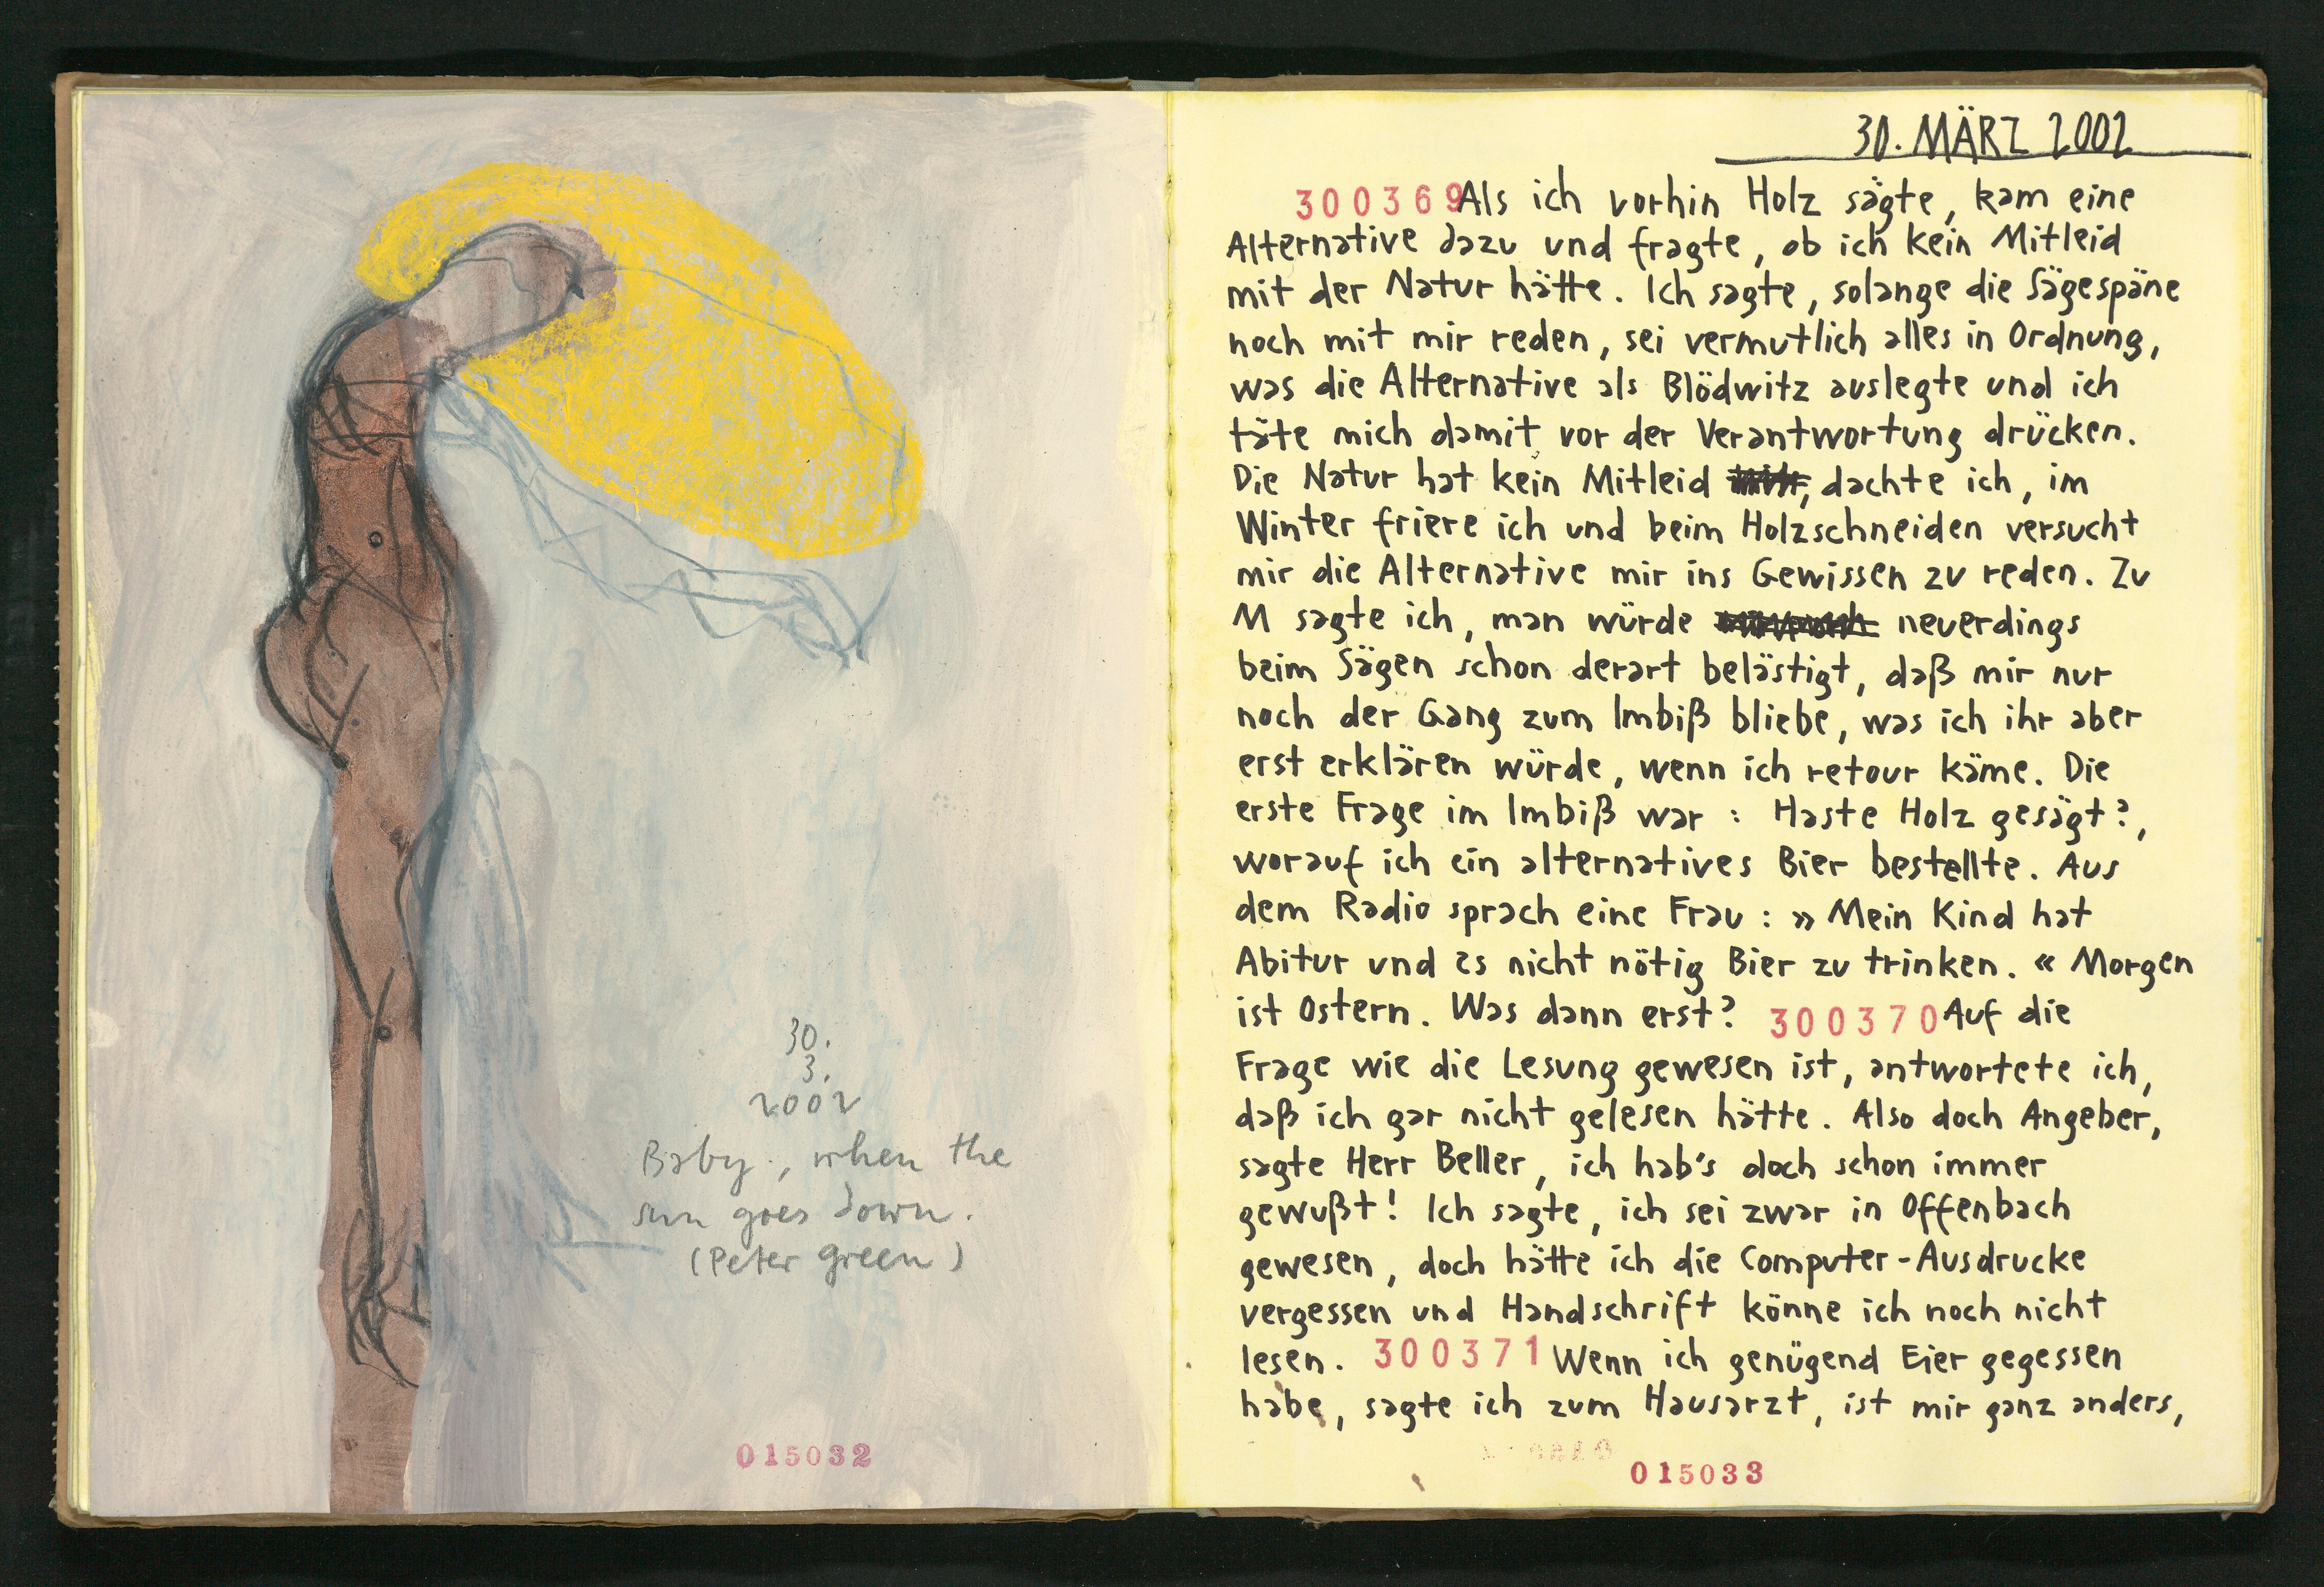 30.
3.
2002
Baby, when the
sun goes down.
(Peter Green)
015032
30. MÄRZ 2002
300369 Als ich vorhin Holz sägte, kam eine
Alternative dazu und fragte, ob ich kein Mitleid
mit der Natur hätte. Ich sagte, solange die Sägespäne
noch mit mir reden, sei vermutlich alles in Ordnung,
was die Alternative als Blödwitz auslegte und ich
täte mich damit vor der Verantwortung drücken.
Die Natur hat kein Mitleid, dachte ich, im
Winter friere ich und beim Holzschneiden versucht
mir die Alternative mir ins Gewissen zu reden. Zu
M sagte ich, man würde neuerdings
beim Sägen schon derart belästigt, daß mir nur
noch der Gang zum Imbiß bliebe, was ich ihr aber
erst erklären würde, wenn ich retour käme. Die
erste Frage im Imbiß war : Haste Holz gesägt?,
worauf ich ein alternatives Bier bestellte. Aus
dem Radio sprach eine Frau : » Mein Kind hat
Abitur und es nicht nötig Bier zu trinken. « Morgen
ist Ostern. Was dann erst? 300370 Auf die
Frage wie die Lesung gewesen ist, antwortete ich,
daß ich gar nicht gelesen hätte. Also doch Angeber,
sagte Herr Beller, ich hab's doch schon immer
gewußt! Ich sagte, ich sei zwar in Offenbach
gewesen, doch hätte ich die Computer-Ausdrucke
vergessen und Handschrift könne ich noch nicht
lesen. 300371 Wenn ich genügend Eier gegessen
habe, sagte ich zum Hausarzt, ist mir ganz anders,
015033